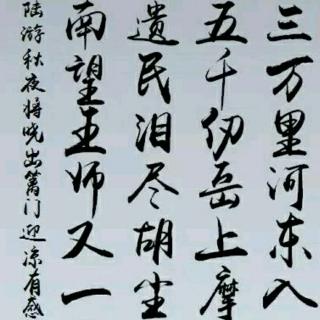 三万里河东入
五千仞岳上摩
遗民泪尽胡尘
南望王师又一
陆游秋夜将晓出篱门迎凉有感